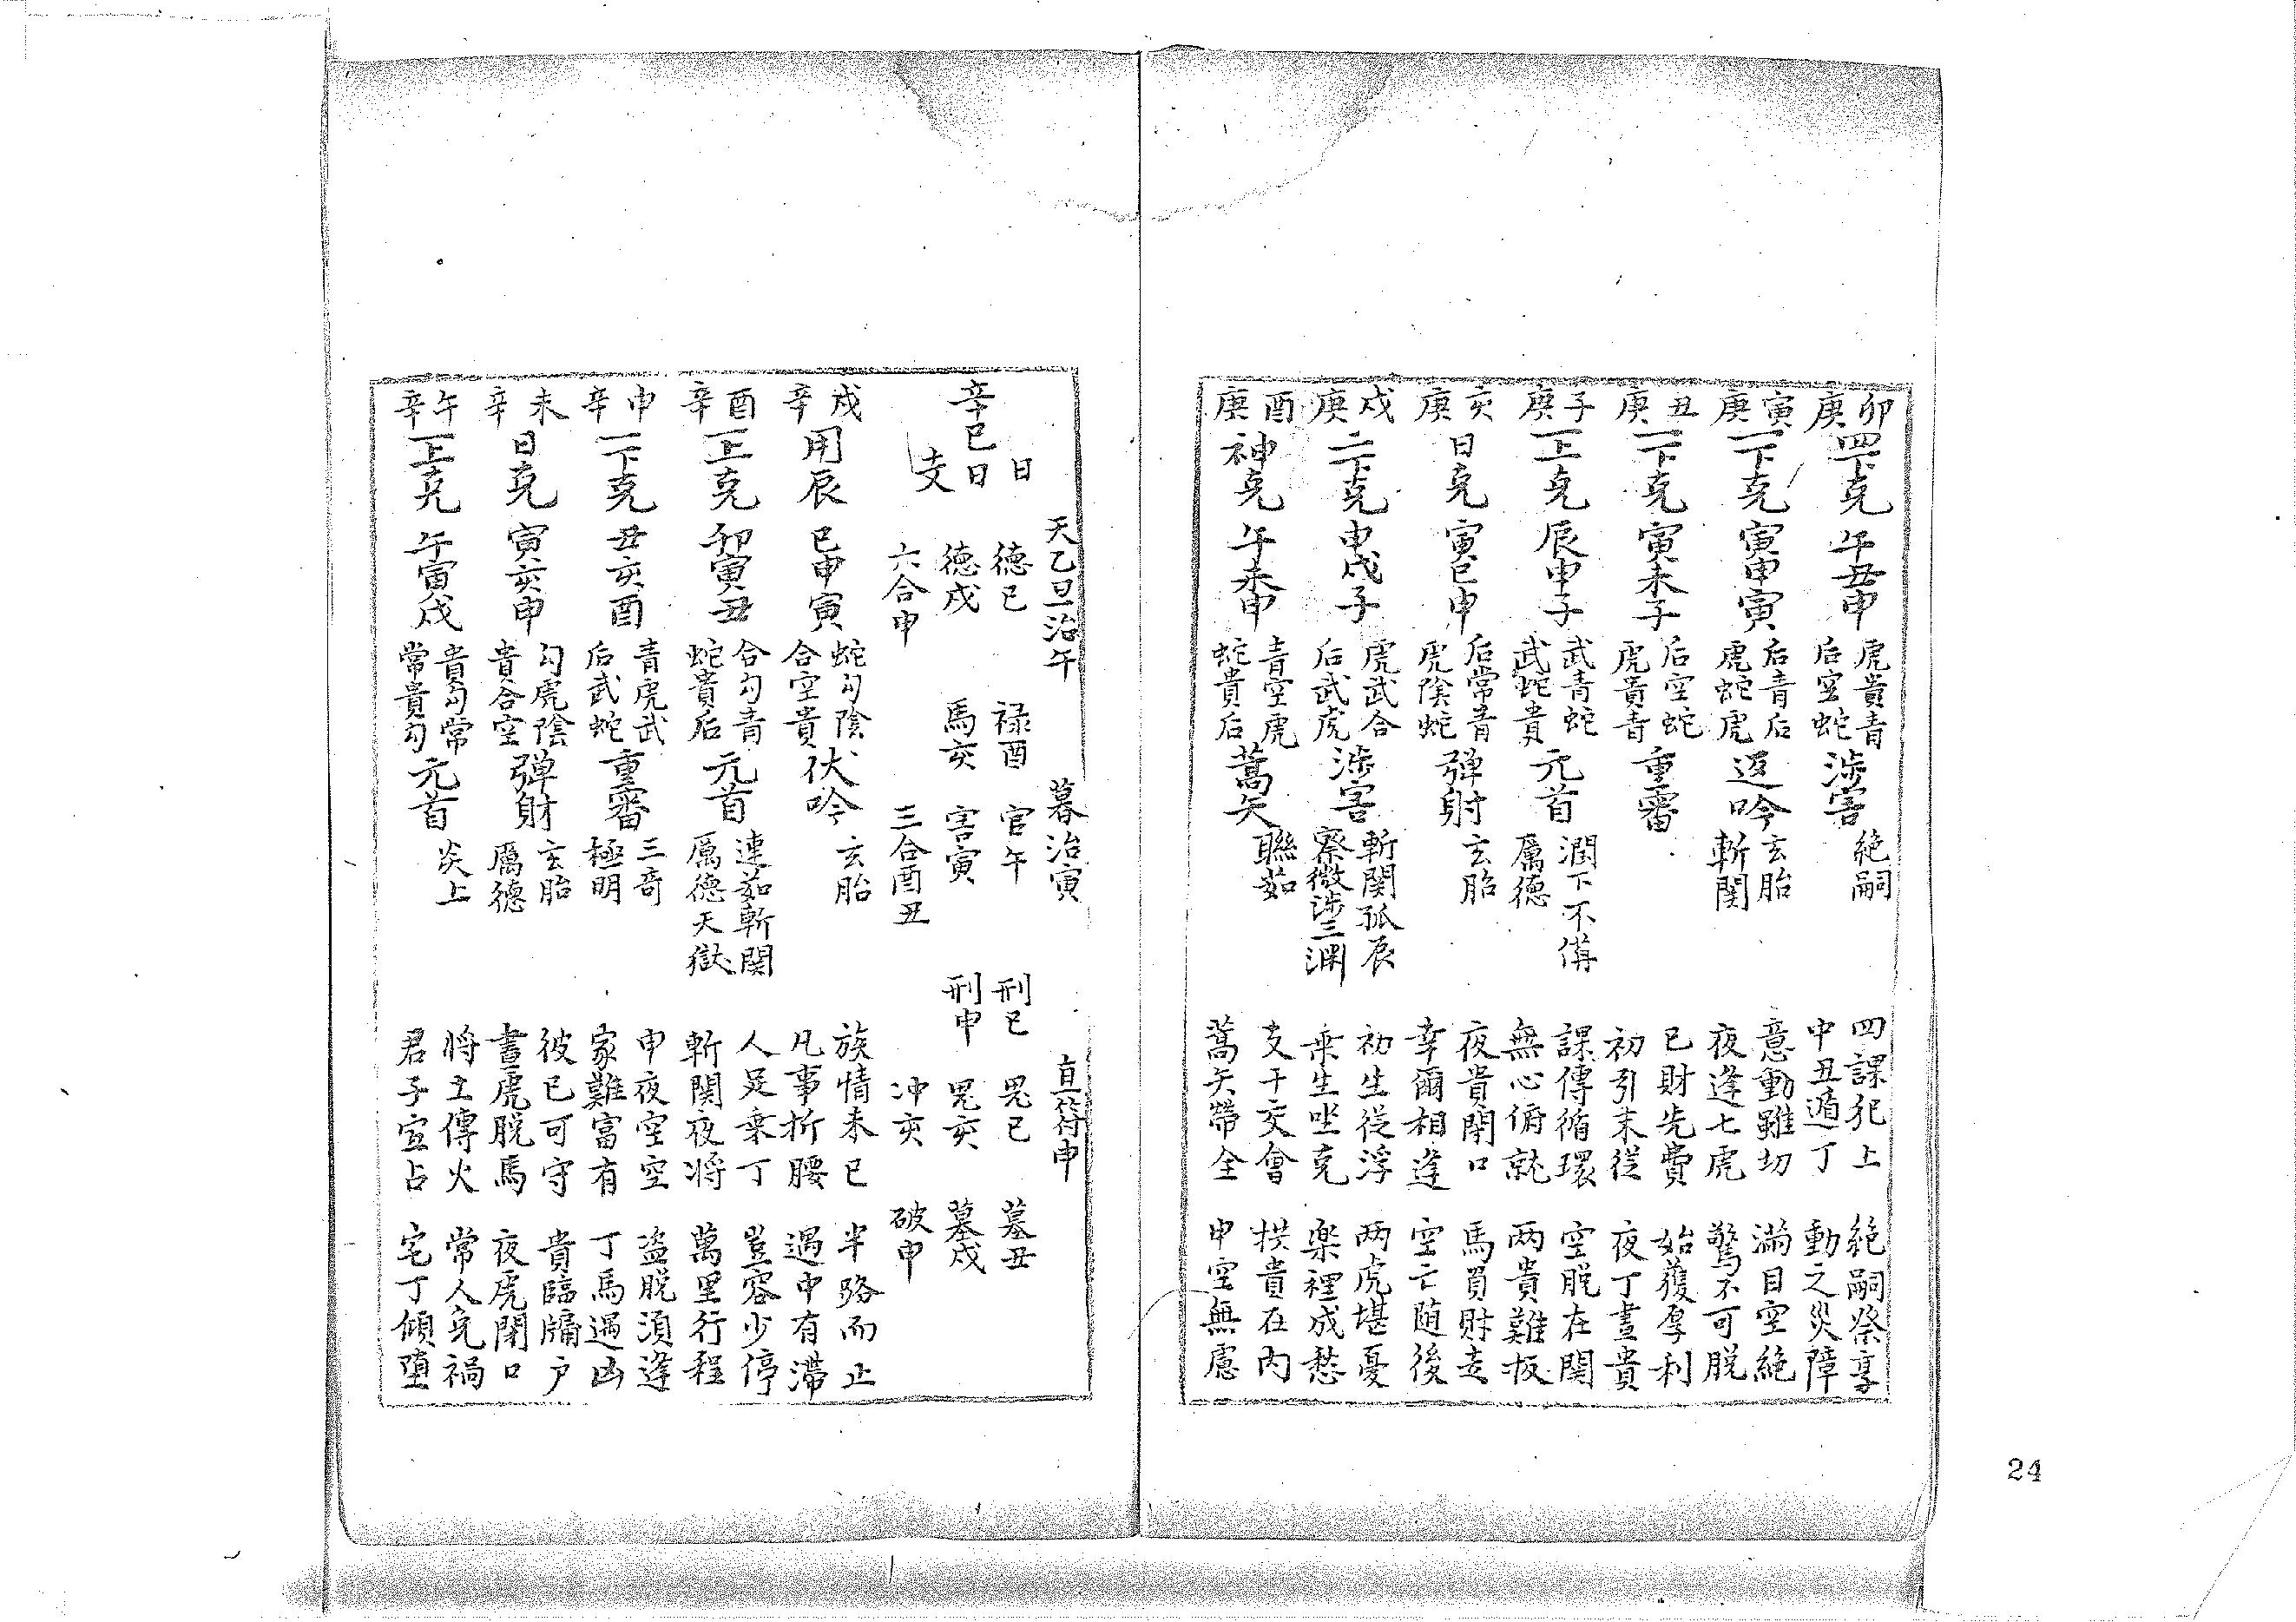 卯庚 四下克 午丑申 虎貴青 后空蛇 涉害 絶嗣 四課犯上 絶嗣祭享
中丑遁丁 動之災障
寅庚 一下克 寅申寅 后青后 虎蛇虎 返吟 玄胎 斬関 意動雖切 滿目空絶
夜逢七虎 驚不可脱
丑庚 一下克 寅未子 后空蛇 虎貴青 重審 已財先費 始獲厚利
初引末從 夜丁晝貴
子庚 一上克 辰申子 武青蛇 武蛇貴 元首 潤下不俻 厲德 課傳循環 空脱在関
無心俯就 两貴難扳
亥庚 日克 寅巳申 后常青 虎陰蛇 彈射 玄胎 夜貴閉口 馬買財走
幸爾相逢 空亡随後
戌庚 二下克 申戌子 虎武合 后武虎 涉害 斬関孤辰 察微涉三渊 初生從浮 两虎堪憂
乗生坐克 楽裡成愁
酉庚 神克 午未申 青空虎 蛇貴后 蒿矢 聯茹 支干交會 拱貴在内
蒿矢帶全 申空無慮
天乙旦治午 暮治寅 直符申
辛巳日
日 德巳 禄酉 官午 刑巳 鬼巳 墓丑
日 德戌 馬亥 害寅 刑申 鬼亥 墓戌
支 六合申 三合酉丑 冲亥 破申
戌辛 用辰 巳申寅 蛇勾陰 合空貴 伏吟 玄胎 族情未已 半路而止
凡事折腰 過申有滯
酉辛 一上克 卯寅丑 合勾青 蛇貴后 元首 連茹斬関 厲德天獄 人足乗丁 豈容少停
斬関夜将 萬里行程
申辛 一下克 丑亥酉 青虎武 后武蛇 重審 三奇 極明 申夜空空 盗脱須逢
家難富有 丁馬遇凶
未辛 日克 寅亥申 勾虎陰 貴合空 彈財 玄胎 厲德 彼已可守 貴臨牗户
晝虎脱馬 夜虎閉口
午辛 一上克 午寅戌 貴勾常 常貴勾 元首 炎上 将主傳火 常人免禍
君子宜占 宅丁傾堕
24